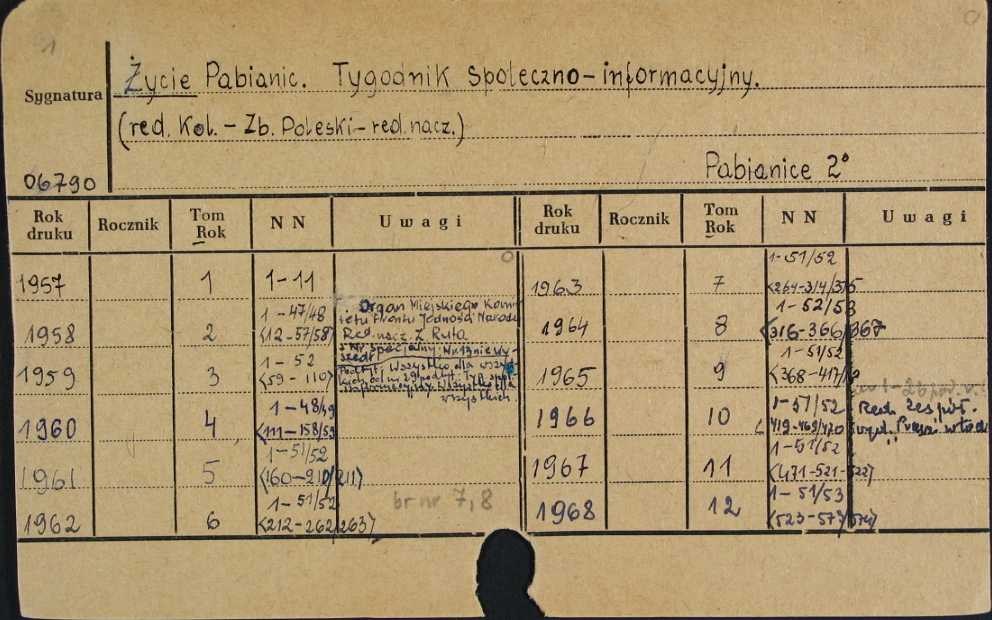 1
Życie Pabianic. Tygodnik społeczno-informacyjny.
Sygnatura
(red. Kol. - Zb. Poleski - red. nacz.)
06790
Pabianice 2°
Rok druku Rocznik Tom Rok N N Uwagi Rok druku Rocznik Tom Rok N N Uwagi
1957 1 1-11
1958 2 1-47/48 <12-57/58>
Organ Miejskiego Komi-
tetu Frontu Jedności Narodu
Red. nacz. Z. Ruta
1959 3 1-52 <59-110>
1960 4 1-48/49 <111-158/59>
1961 5 1-51/52 <160-210/211>
1962 6 1-51/52 <212-262/263>
br nr 7,8
1963 7 1-51/52 <264-314/315
1964 8 1-52/53 <316-366/367
1965 9 1-51/52 <368-417/
1966 10 1-51/52 <419-469/470
Red. zespół.
1967 11 1-51/52 <471-521-522>
1968 12 1-51/53 <523-573/574>